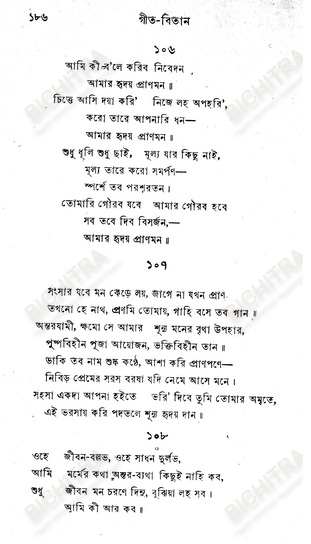 ১৮৬ গীত-বিতান
১০৬
আমি কী ব'লে করিব নিবেদন
আমার হৃদয় প্রাণমন ॥
চিত্তে আসি দয়া করি' নিজে লহ অপহরি',
করো তারে আপনারি ধন—
আমার হৃদয় প্রাণমন ॥
শুধু ধূলি শুধু ছাই, মূল্য যার কিছু নাই,
মূল্য তারে করো সমর্পণ—
স্পর্শে তব পরশরতন।
তোমারি গৌরব যবে আমার গৌরব হবে
সব তবে দিব বিসর্জন,—
আমার হৃদয় প্রাণমন ॥
১০৭
সংসার যবে মন কেড়ে লয়, জাগে না যখন প্রাণ
তখনো হে নাথ, প্রণমি তোমায়, গাহি বসে তব গান ॥
অন্তরযামী, ক্ষমো সে আমার শূন্য মনের বৃথা উপহার,
পুষ্পবিহীন পূজা আয়োজন, ভক্তিবিহীন তান ॥
ডাকি তব নাম শুষ্ক কণ্ঠে, আশা করি প্রাণপণে—
নিবিড় প্রেমের সরস বরষা যদি নেমে আসে মনে।
সহসা একদা আপনা হইতে ভরি' দিবে তুমি তোমার অমৃতে,
এই ভরসায় করি পদতলে শূন্য হৃদয় দান ॥
১০৮
ওহে জীবন-বল্লভ, ওহে সাধন দুর্লভ,
আমি মর্মের কথা অন্তর-ব্যথা কিছুই নাহি কব,
শুধু জীবন মন চরণে দিনু, বুঝিয়া লহ সব।
আমি কী আর কব ॥
BICHITRA